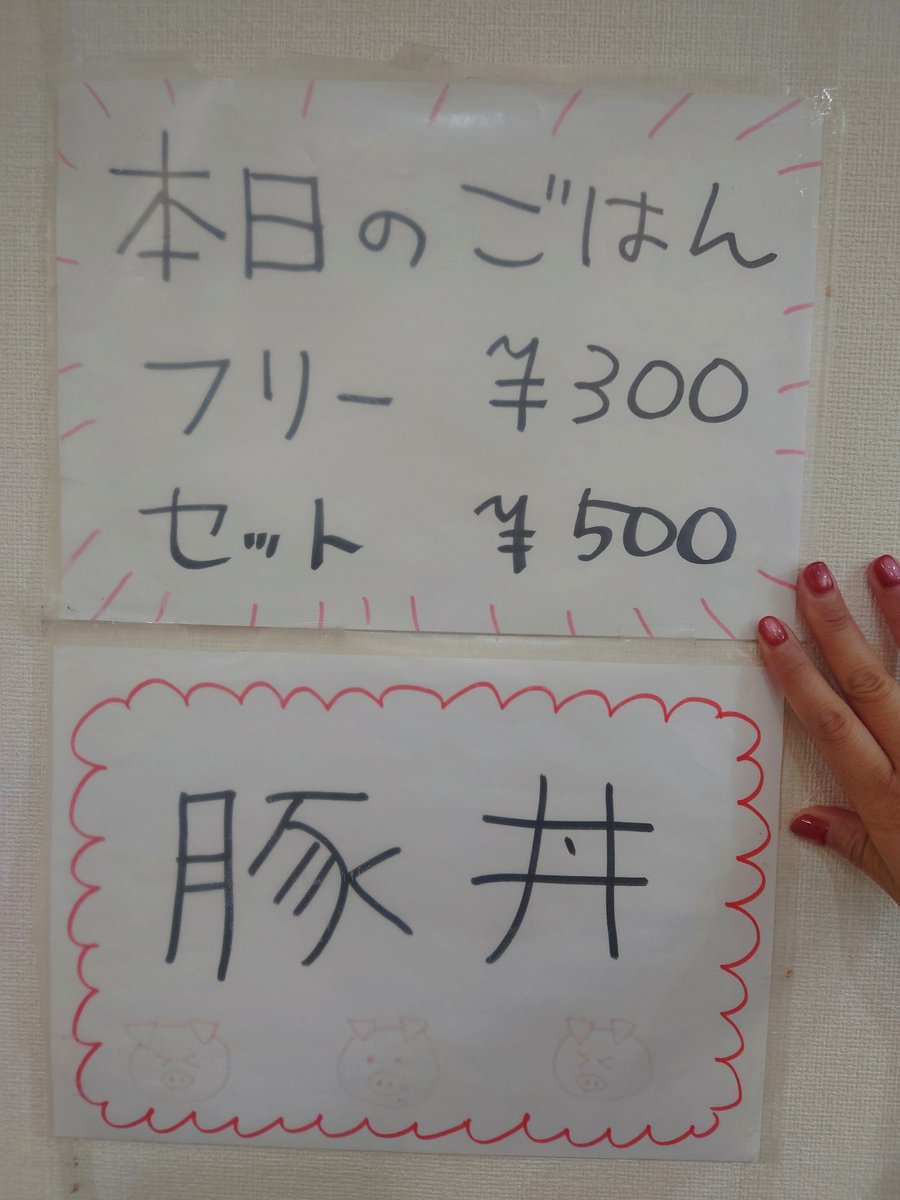 本日のごはん
フリー ¥300
セット ¥500
豚丼